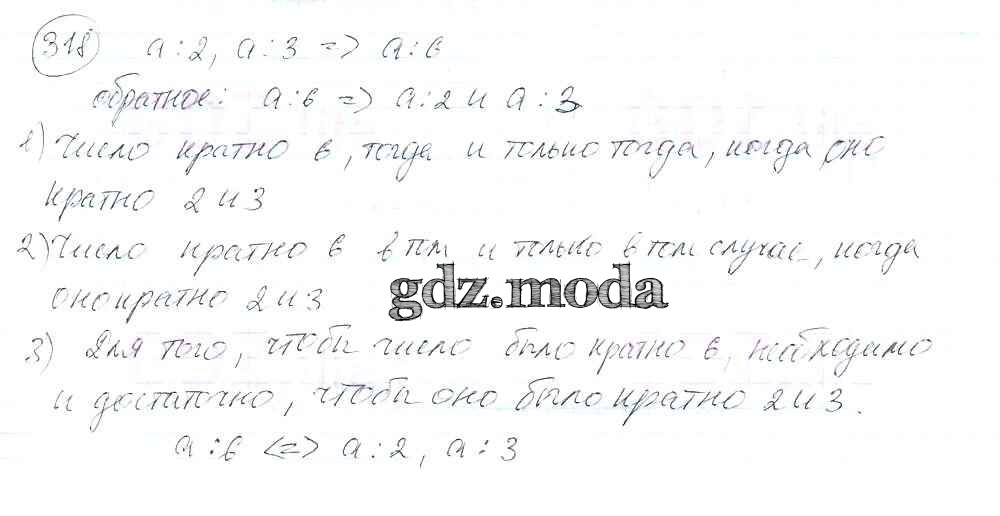 318 a : 2, a : 3 => a : 6
обратное: a : 6 => a : 2 и a : 3
1) Число кратно 6, тогда и только тогда, когда оно
кратно 2 и 3
2) Число кратно 6 в том и только в том случае, когда
оно кратно 2 и 3
gdz.moda
3) Для того, чтобы число было кратно 6, необходимо
и достаточно, чтобы оно было кратно 2 и 3.
a : 6 <=> a : 2, a : 3